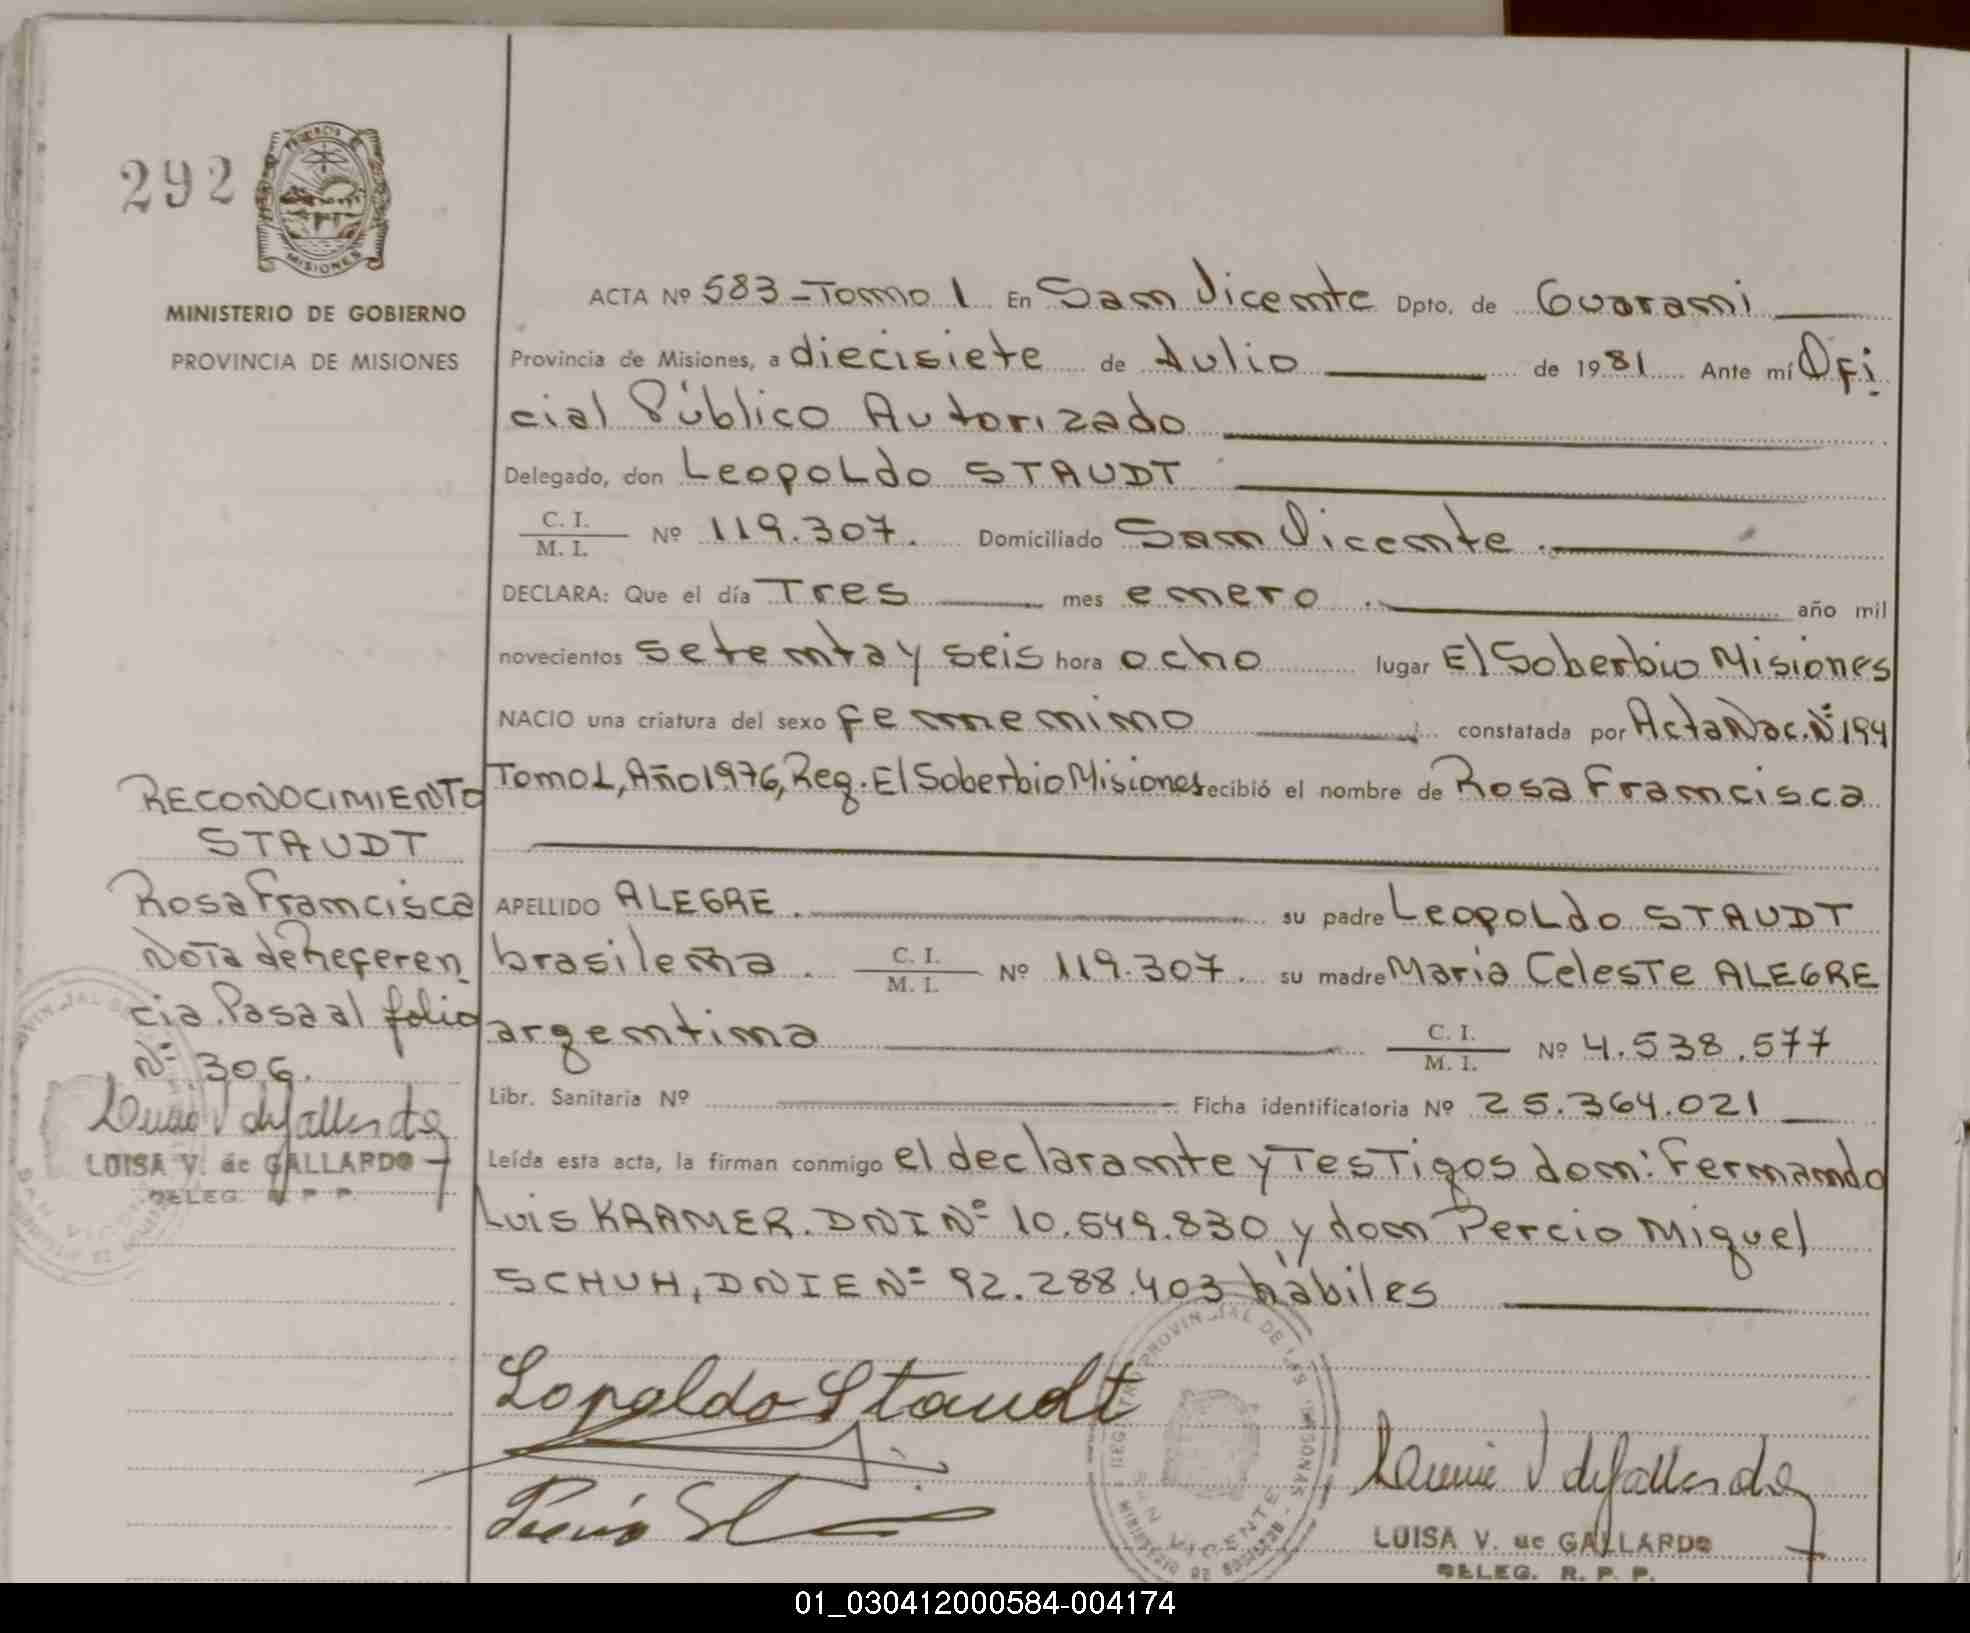 292
PROVINCIA DE
MISIONES
MINISTERIO DE GOBIERNO
PROVINCIA DE MISIONES
ACTA Nº 583 - Tomo 1 En San Vicente Dpto. de Guarani
Provincia de Misiones, a diecisiete de Julio de 1981 Ante mí Ofi
cial Público Autorizado
Delegado, don Leopoldo STAUDT
C. I. / M. I. Nº 119.307. Domiciliado San Vicente.
DECLARA: Que el día Tres mes enero. año mil
novecientos setenta y seis hora ocho lugar El Soberbio Misiones
NACIO una criatura del sexo femenino constatada por Acta Nac. Nº 194
Tomo 1, Año 1976, Reg. El Soberbio Misiones recibió el nombre de Rosa Francisca
APELLIDO ALEGRE. su padre Leopoldo STAUDT
brasileña. C. I. / M. I. Nº 119.307. su madre María Celeste ALEGRE
argentina C. I. / M. I. Nº 4.538.577
Libr. Sanitaria Nº Ficha identificatoria Nº 25.364.021
Leída esta acta, la firman conmigo el declarante y Testigos don: Fernando
Luis KRAMER. DNI Nº 10.549.830 y don Percio Miguel
SCHUH, DNIE Nº 92.288.403 hábiles
RECONOCIMIENTO
STAUDT
Rosa Francisca
Nota de Referen
cia. Pasa al folio
Nº 306.
Luisa V de Gallardo
LUISA V. de GALLARDO
DELEG. R. P. P.
Lopoldo Staudt
REGISTRO PROVINCIAL DE LAS PERSONAS
SAN VICENTE
Luisa V de Gallardo
LUISA V. de GALLARDO
DELEG. R. P. P.
01_030412000584-004174